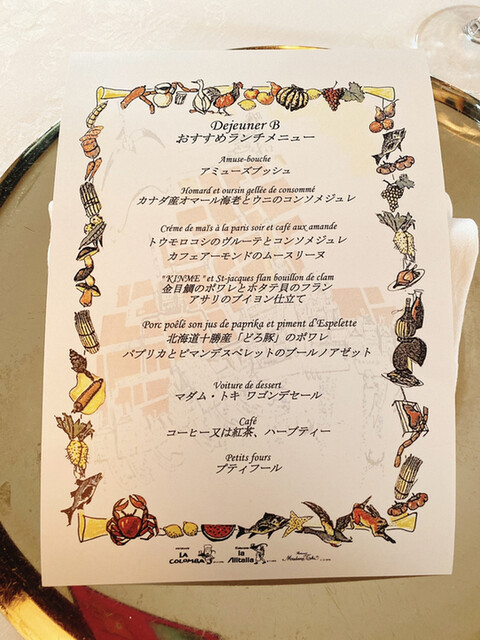 Dejeuner B
おすすめランチメニュー
Amuse-bouche
アミューズブッシュ
Homard et oursin gellée de consommé
カナダ産オマール海老とウニのコンソメジュレ
Crème de maïs à la paris soir et café aux amande
トウモロコシのヴルーテとコンソメジュレ
カフェアーモンドのムースリーヌ
"KINME" et St-jacques flan bouillon de clam
金目鯛のポワレとホタテ貝のフラン
アサリのブイヨン仕立て
Porc poêlé son jus de paprika et piment d'Espelette
北海道十勝産「どろ豚」のポワレ
パプリカとピマンデスペレットのブールノアゼット
Voiture de dessert
マダム・トキ ワゴンデセール
Café
コーヒー又は紅茶、ハーブティー
Petits fours
プティフール
LA COLOMBA
la Alitalia
Madame Toki